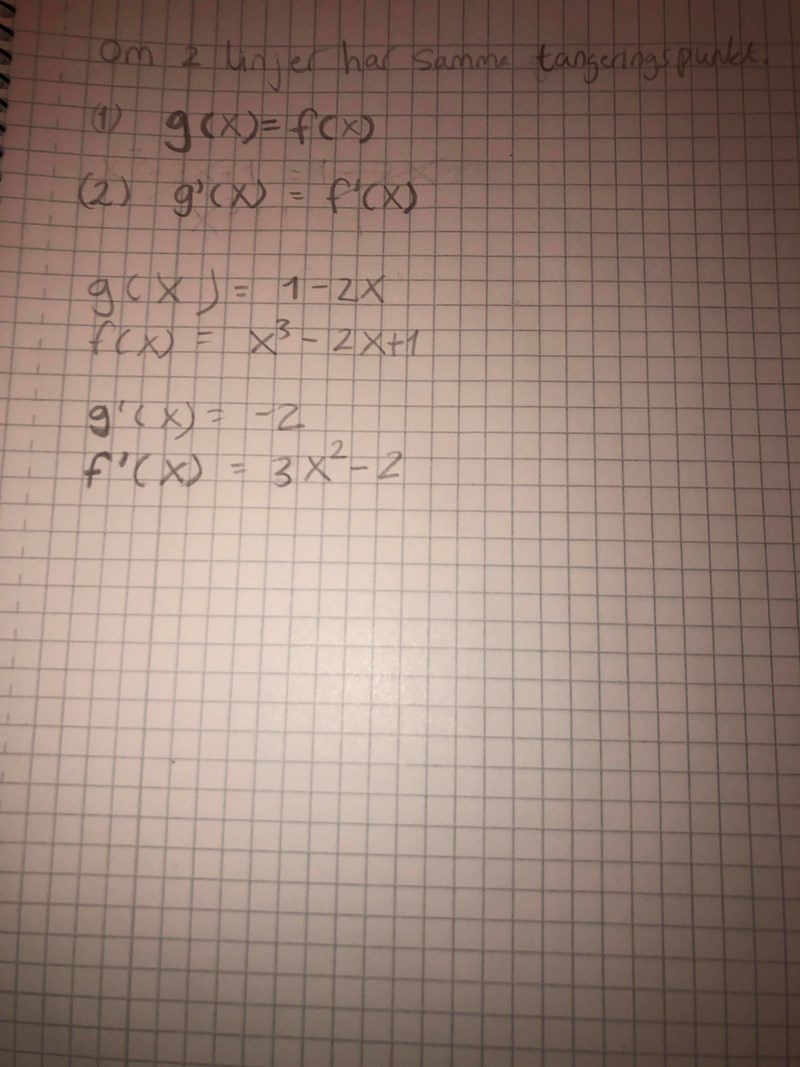 Om 2 linjer har samma tangeringspunkt.
(1) g(x)=f(x)
(2) g'(x) = f'(x)
g(x) = 1-2x
f(x) = x³ - 2x+1
g'(x) = -2
f'(x) = 3x²-2